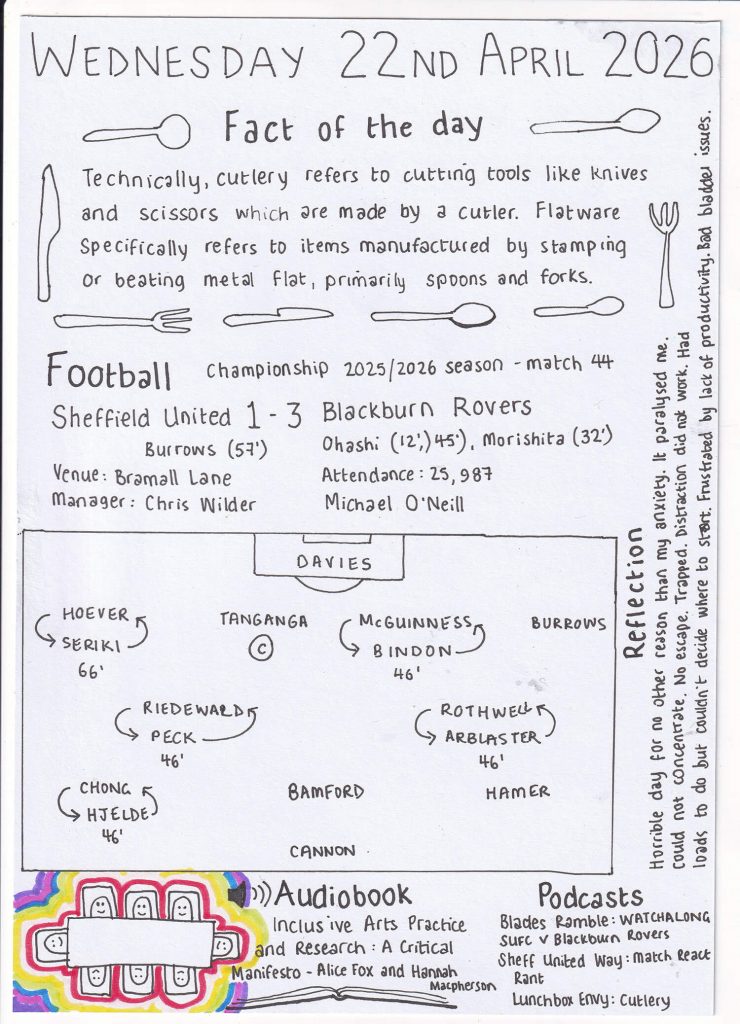 WEDNESDAY 22ND APRIL 2026
Fact of the day
Technically, cutlery refers to cutting tools like knives
and scissors which are made by a cutler. Flatware
specifically refers to items manufactured by stamping
or beating metal flat, primarily spoons and forks.
Football Championship 2025/2026 season - match 44
Sheffield United 1 - 3 Blackburn Rovers
Burrows (57') Ohashi (12',)45'), Morishita (32')
Venue: Bramall Lane Attendance: 25,987
Manager: Chris Wilder Michael O'Neill
DAVIES
HOEVER TANGANGA McGUINNESS BURROWS
SERIKI C BINDON
66' 46'
RIEDEWALD ROTHWELL
PECK ARBLASTER
46' 46'
CHONG BAMFORD HAMER
HJELDE
46'
CANNON
Reflection
Horrible day for no other reason than my anxiety. It paralysed me.
Could not concentrate. No escape. Trapped. Distraction did not work. Had
loads to do but couldn't decide where to start. Frustrated by lack of productivity. Bad bladder issues.
Audiobook
Inclusive Arts Practice
and Research: A Critical
Manifesto - Alice Fox and Hannah
Macpherson
Podcasts
Blades Ramble: WATCHALONG
SUFC V Blackburn Rovers
Sheff United Way: Match React
Rant
Lunchbox Envy: Cutlery